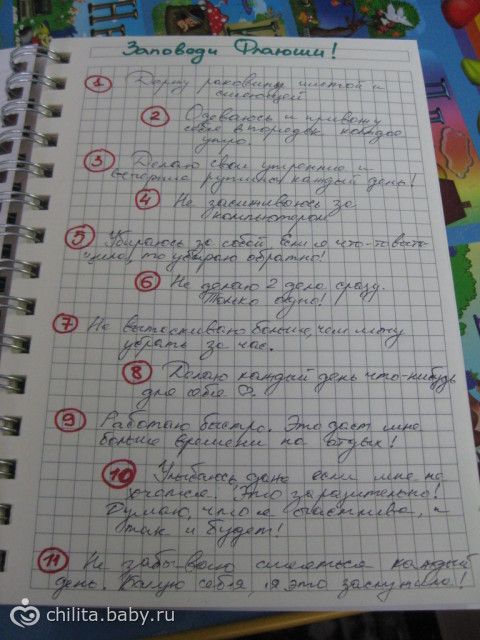 Заповеди Флаюши!
1 Держу раковину чистой и
сияющей
2 Одеваюсь и привожу
себя в порядок каждое
утро.
3 Делаю свои утренние и
вечерние рутины каждый день!
4 Не засиживаюсь за
компьютером
5 Убираюсь за собой, если я что-то выта-
щила, то убираю обратно!
6 Не делаю 2 дела сразу.
Только одно!
7 Не вытаскиваю больше, чем могу
убрать за час.
8 Делаю каждый день что-нибудь
для себя ♡.
9 Работаю быстро. Это даст мне
больше времени на отдых!
10 Улыбаюсь даже если мне не
хочется. Это заразительно!
Думаю, что я счастлива, -
так и будет!
11 Не забываю смеяться каждый
день. Балую себя, я это заслужила!
chilita.baby.ru